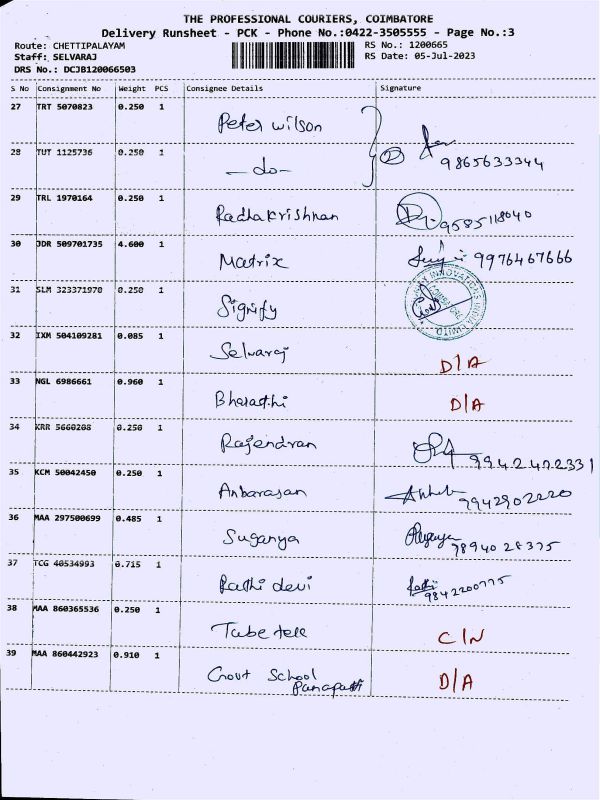 THE PROFESSIONAL COURIERS, COIMBATORE
Delivery Runsheet - PCK - Phone No.:0422-3505555 - Page No.:3
Route: CHETTIPALAYAM RS No.: 1200665
Staff: SELVARAJ RS Date: 05-Jul-2023
DRS No.: DCJB120066503
S No Consignment No Weight PCS Consignee Details Signature
27 TRT 5070823 0.250 1 Peter Wilson
28 TUT 1125736 0.250 1 -do- 2 9865633344
29 TRL 1970164 0.250 1 Radhakrishnan 9585118040
30 JDR 509701735 4.600 1 Matrix 9976467666
31 SLM 323371970 0.250 1 Signify
INNOVATIONS INDIA LIMITED
32 IXM 504109281 0.085 1 Selvaraj D/A
33 NGL 6986661 0.960 1 Bharathi D/A
34 KRR 5660208 0.250 1 Rajendran 9942472331
35 KCM 50042450 0.250 1 Anbarasan 9942902220
36 MAA 297500699 0.485 1 Suganya 7894028375
37 TCG 40534993 0.715 1 Rathi devi 9842200775
38 MAA 860365536 0.250 1 Tube tele C/N
39 MAA 860442923 0.910 1 Govt School D/A
Panapatti